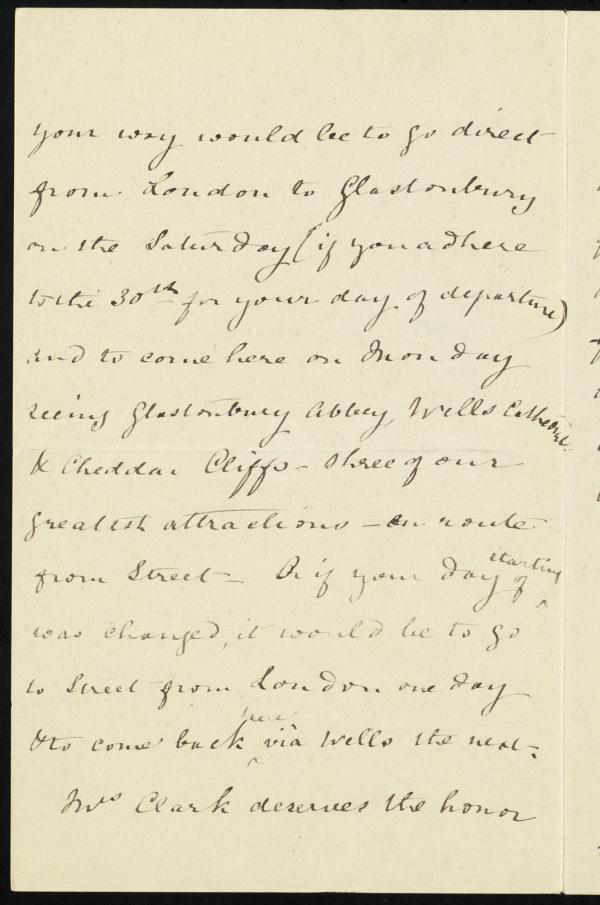 your way would be to go direct
from London to Glastonbury
on the Saturday (if you adhere
to the 30th for your day of departure)
and to come here on Monday
seeing Glastonbury Abbey, Wells Cathedral
& Cheddar Cliffs - three of our
greatest attractions - en route
from Street - Or if your day of starting
was changed, it would be to go
to Street from London one day
& to come back here via Wells the next.
Mrs Clark deserves the honor